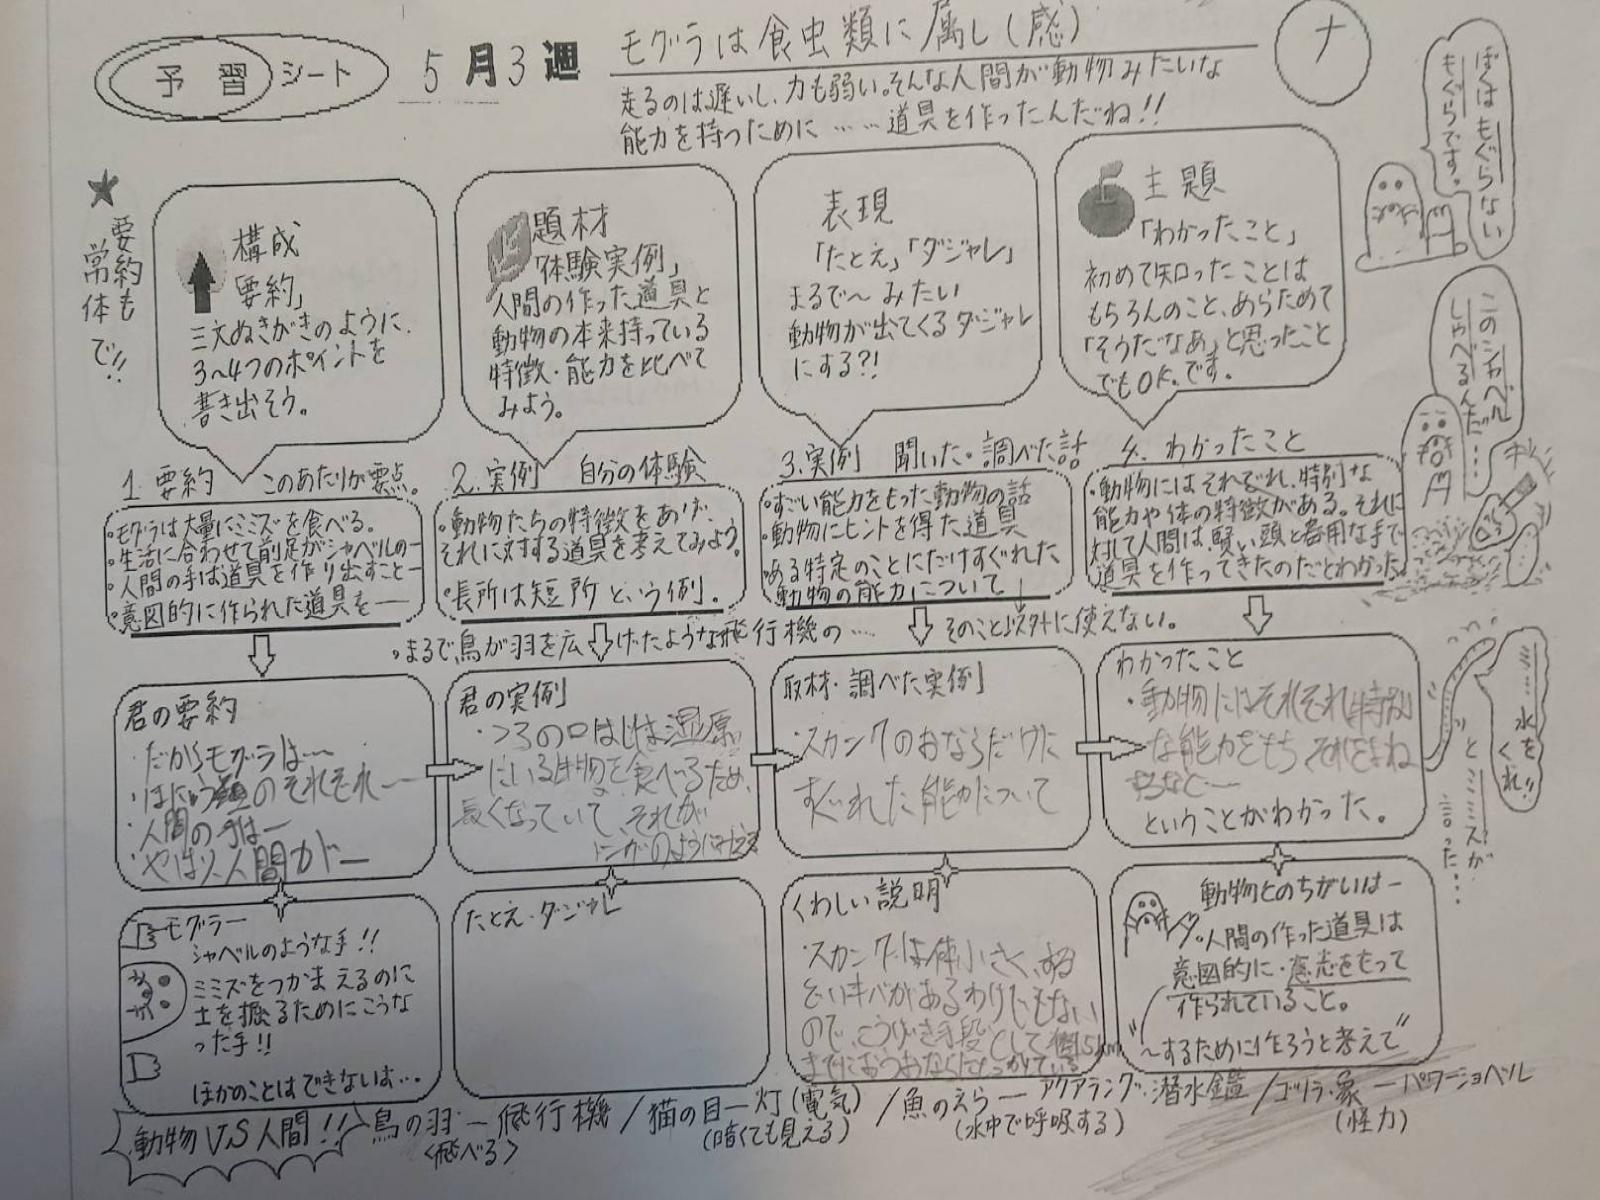 予習シート
5月3週
モグラは食虫類に属し(感)
走るのは遅いし、力も弱い。そんな人間が動物みたいな
能力を持つために……道具を作ったんだね!!
ナ
ぼくはもぐらない
もぐらです。
★要約も
常体で!!
構成
要約」
三文ぬきがきのように、
3~4つのポイントを
書き出そう。
題材
「体験実例」
人間の作った道具と
動物の本来持っている
特徴・能力を比べて
みよう。
表現
「たとえ」「ダジャレ」
まるで~みたい
動物が出てくるダジャレ
にする?!
主題
「わかったこと」
初めて知ったことは
もちろんのこと、あらためて
「そうだなあ」と思ったこと
でもOK。です。
このシャベル
しゃべるんだ…
1.要約 このあたりが要点。
・モグラは大量にミミズを食べる。
・生活に合わせて前足がシャベルの―
・人間の手は道具を作り出すこと―
・意図的に作られた道具を――
2.実例 自分の体験
・動物たちの特徴をあげ、
それに対する道具を考えてみよう。
・長所は短所という例。
3.実例 聞いた・調べた話
・すごい能力をもった動物の話
・動物にヒントを得た道具
・ある特定のことにだけすぐれた
動物の能力について
そのこと以外に使えない。
4.わかったこと
・動物にはそれぞれ、特別な
能力や体の特徴がある。それに
対して人間は、賢い頭と器用な手で
道具を作ってきたのだとわかった。
・まるで鳥が羽を広げたような飛行機の…
君の要約
・だからモグラは……
のそれぞれ――
・人間の手は―
・やはり、人間が―
君の実例
口ばしは湿原
にいる生物を食べるため、
長くなっていて、それが
取材・調べた実例
・スカンクのおならだけに
すぐれた能力について
わかったこと
・動物にはそれぞれ特別
な能力をもち
ということがわかった。
水をくれ!!
とミミズが
言った…
モグラ―
シャベルのような手!!
ミミズをつかまえるのに
土を掘るためにこうな
った手!!
ほかのことはできないは…
たとえ・ダジャレ
くわしい説明
・スカンクは体小さく、する
どいキバがあるわけでもない
ので、こうげき手段として
動物とのちがいは―
・人間の作った道具は
意図的に・意志をもって
作られていること。
"~するために作ろうと考えて"
動物VS人間!!
鳥の羽―飛行機/猫の目―灯(電気)/魚のえら―アクアラング・潜水艦/ゴリラ・象―パワーショベル
<飛べる>
(暗くても見える)
(水中で呼吸する)
(怪力)